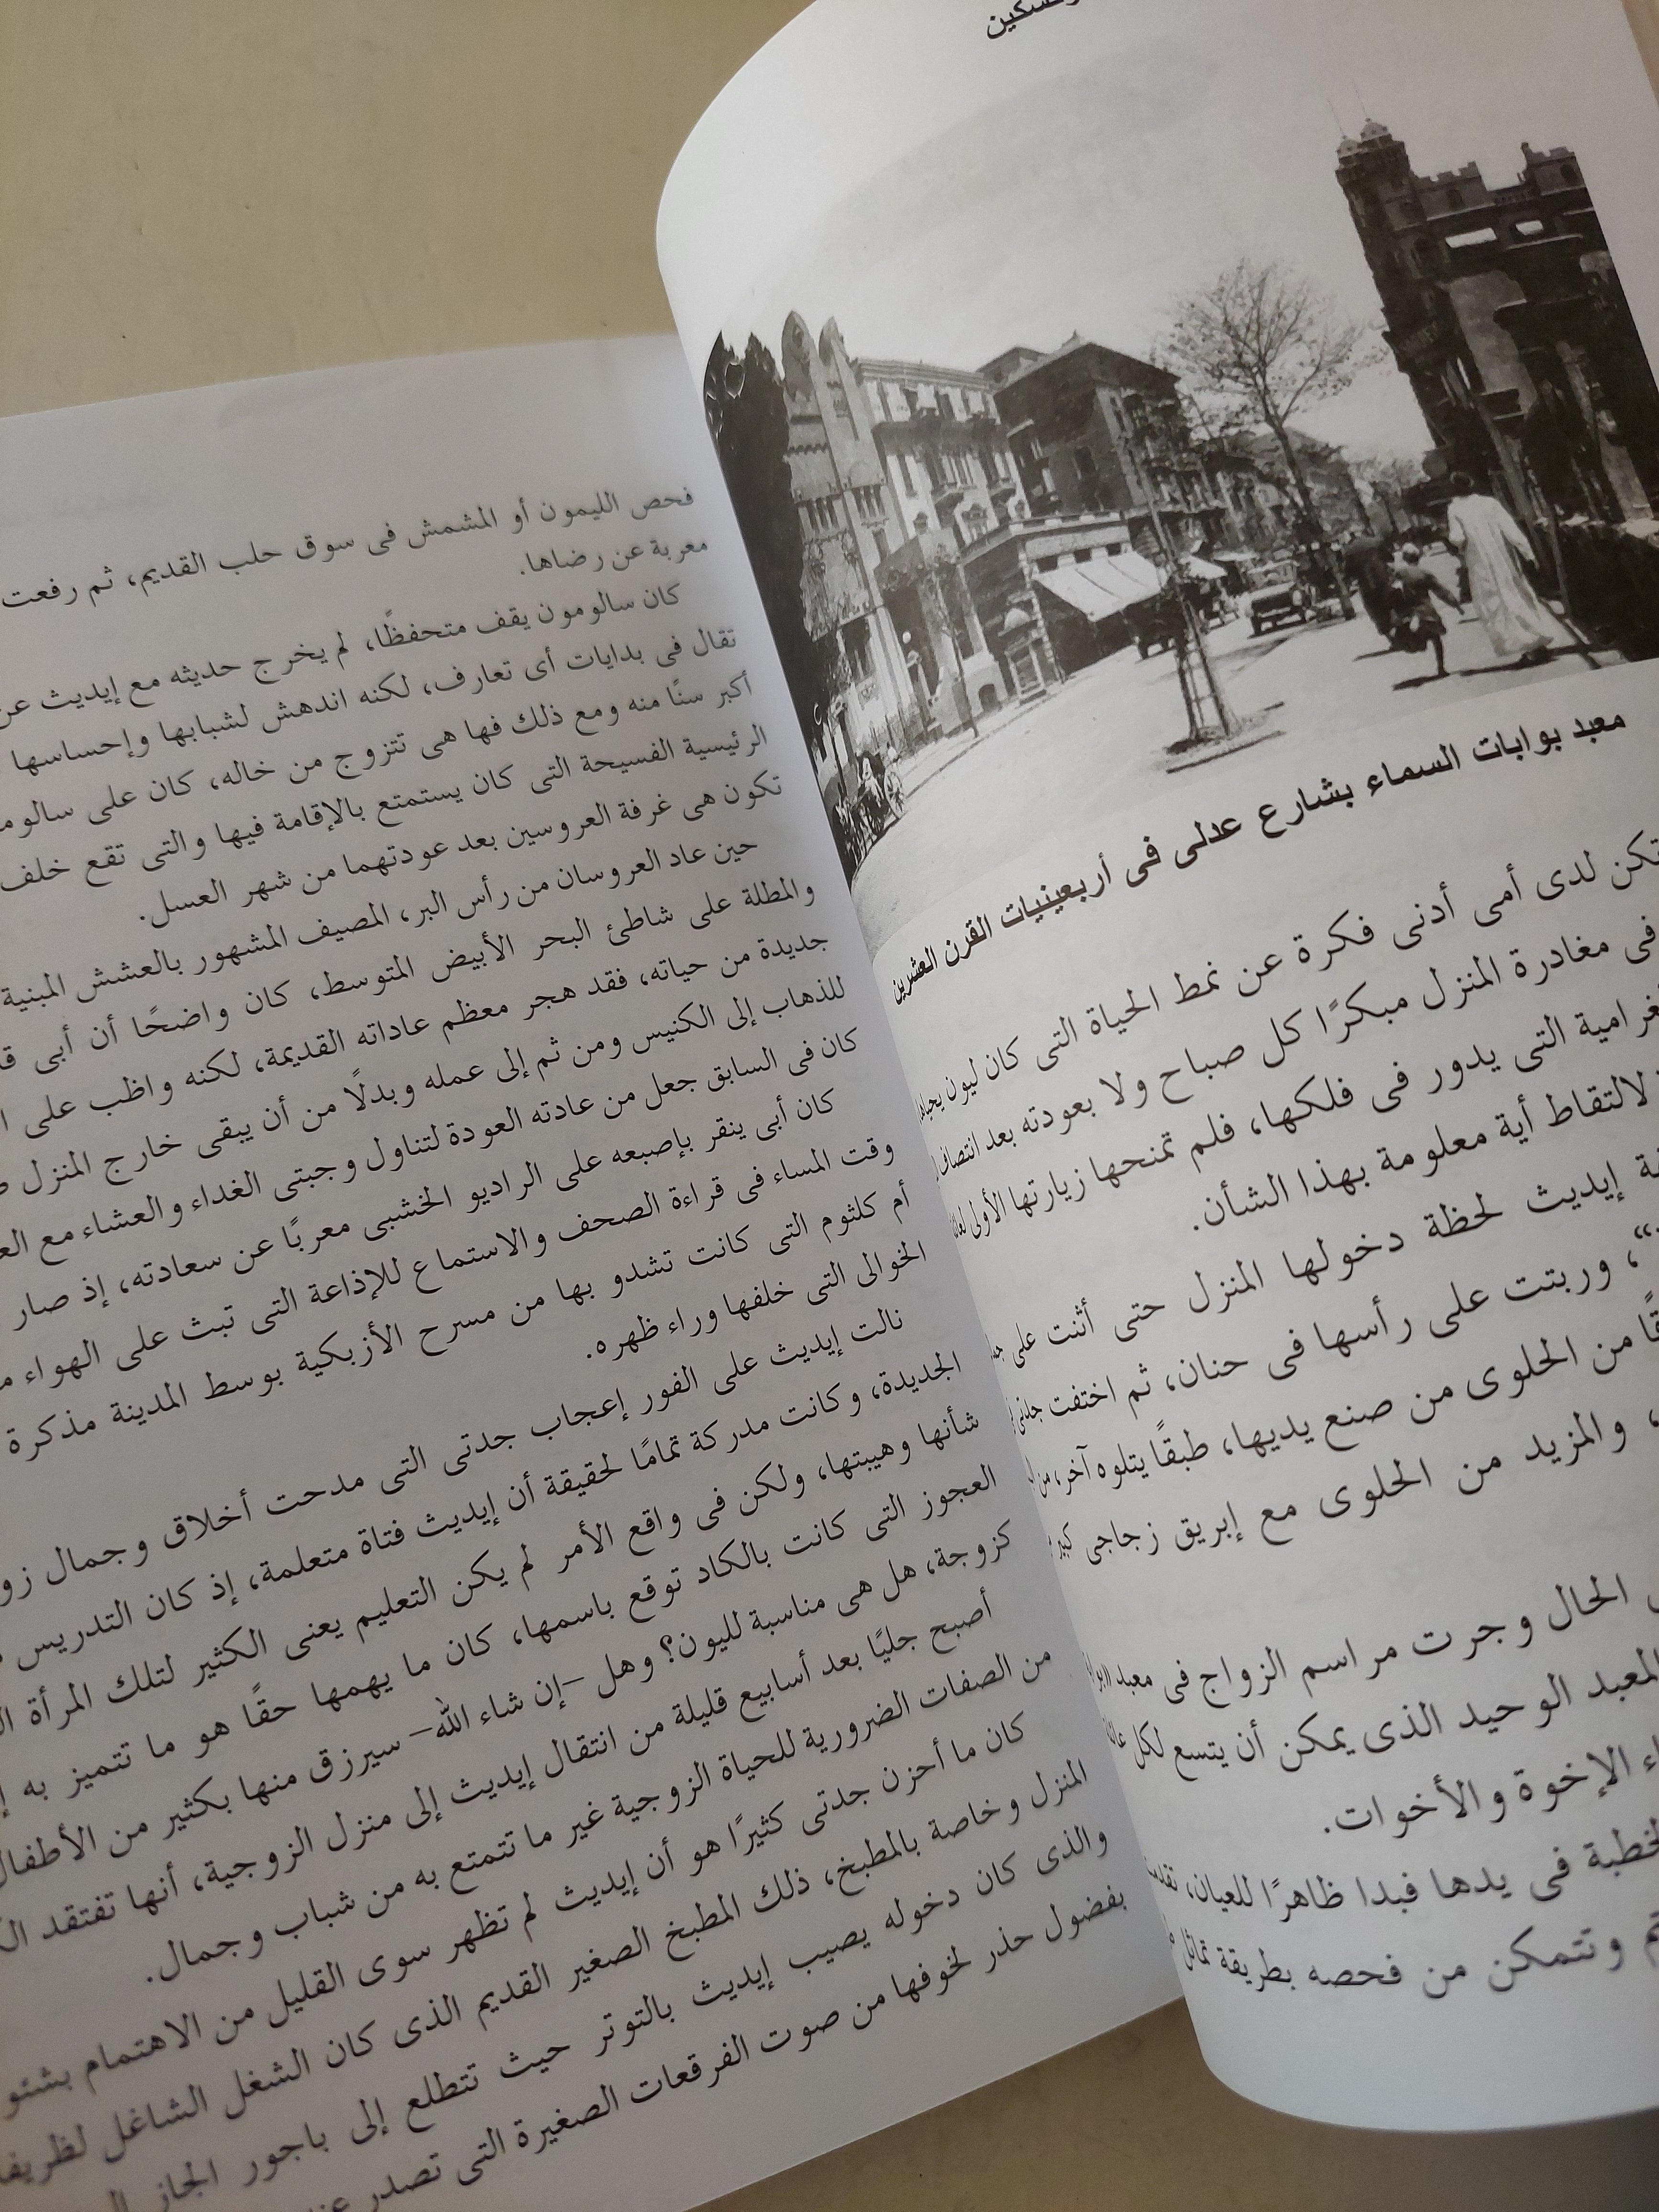 معبد بوابات السماء بشارع عدلى فى أربعينيات القرن العشرين
تكن لدى أمى أدنى فكرة عن نمط الحياة التى كان ليون يحياها
فى مغادرة المنزل مبكرًا كل صباح ولا بعودته بعد انتصاف
التى يدور فى فلكها، فلم تمنحها زيارتها الأولى
لالتقاط أية معلومة بهذا الشأن.
إيديث لحظة دخولها المنزل حتى أثنت على
وربتت على رأسها فى حنان، ثم اختفت جدتى
من الحلوى من صنع يديها، طبقًا يتلوه آخر، من
والمزيد من الحلوى مع إبريق زجاجى كبير
الحال وجرت مراسم الزواج فى معبد
المعبد الوحيد الذى يمكن أن يتسع لكل
الإخوة والأخوات.
فى يدها فبدا ظاهرًا للعيان،
وتتمكن من فحصه بطريقة تماثل
فحص الليمون أو المشمش فى سوق حلب القديم، ثم رفعت
معربة عن رضاها.
كان سالومون يقف متحفظًا، لم يخرج حديثه مع إيديث عن
تقال فى بدايات أى تعارف، لكنه اندهش لشبابها وإحساسها
أكبر سنًا منه ومع ذلك فها هى تتزوج من خاله، كان على
الرئيسية الفسيحة التى كان يستمتع بالإقامة فيها والتى تقع خلف
تكون هى غرفة العروسين بعد عودتهما من شهر العسل.
حين عاد العروسان من رأس البر، المصيف المشهور بالعشش المبنية
والمطلة على شاطئ البحر الأبيض المتوسط، كان واضحًا أن أبى
جديدة من حياته، فقد هجر معظم عاداته القديمة، لكنه واظب على
للذهاب إلى الكنيس ومن ثم إلى عمله وبدلًا من أن يبقى خارج المنزل
كان فى السابق جعل من عادته العودة لتناول وجبتى الغداء والعشاء مع
كان أبى ينقر بإصبعه على الراديو الخشبى معربًا عن سعادته، إذ صار
وقت المساء فى قراءة الصحف والاستماع للإذاعة التى تبث على الهواء
أم كلثوم التى كانت تشدو بها من مسرح الأزبكية بوسط المدينة مذكرة
الخوالى التى خلفها وراء ظهره.
نالت إيديث على الفور إعجاب جدتى التى مدحت أخلاق وجمال
الجديدة، وكانت مدركة تمامًا لحقيقة أن إيديث فتاة متعلمة، إذ كان التدريس
شأنها وهيبتها، ولكن فى واقع الأمر لم يكن التعليم يعنى الكثير لتلك المرأة
العجوز التى كانت بالكاد توقع باسمها، كان ما يهمها حقًا هو ما تتميز به
كزوجة، هل هى مناسبة لليون؟ وهل –إن شاء الله– سيرزق منها بكثير من الأطفال
أصبح جليًا بعد أسابيع قليلة من انتقال إيديث إلى منزل الزوجية، أنها تفتقد
من الصفات الضرورية للحياة الزوجية غير ما تتمتع به من شباب وجمال.
كان ما أحزن جدتى كثيرًا هو أن إيديث لم تظهر سوى القليل من الاهتمام
المنزل وخاصة بالمطبخ، ذلك المطبخ الصغير القديم الذى كان الشغل الشاغل
والذى كان دخوله يصيب إيديث بالتوتر حيث تتطلع إلى باجور الجاز
بفضول حذر لخوفها من صوت الفرقعات الصغيرة التى تصدر